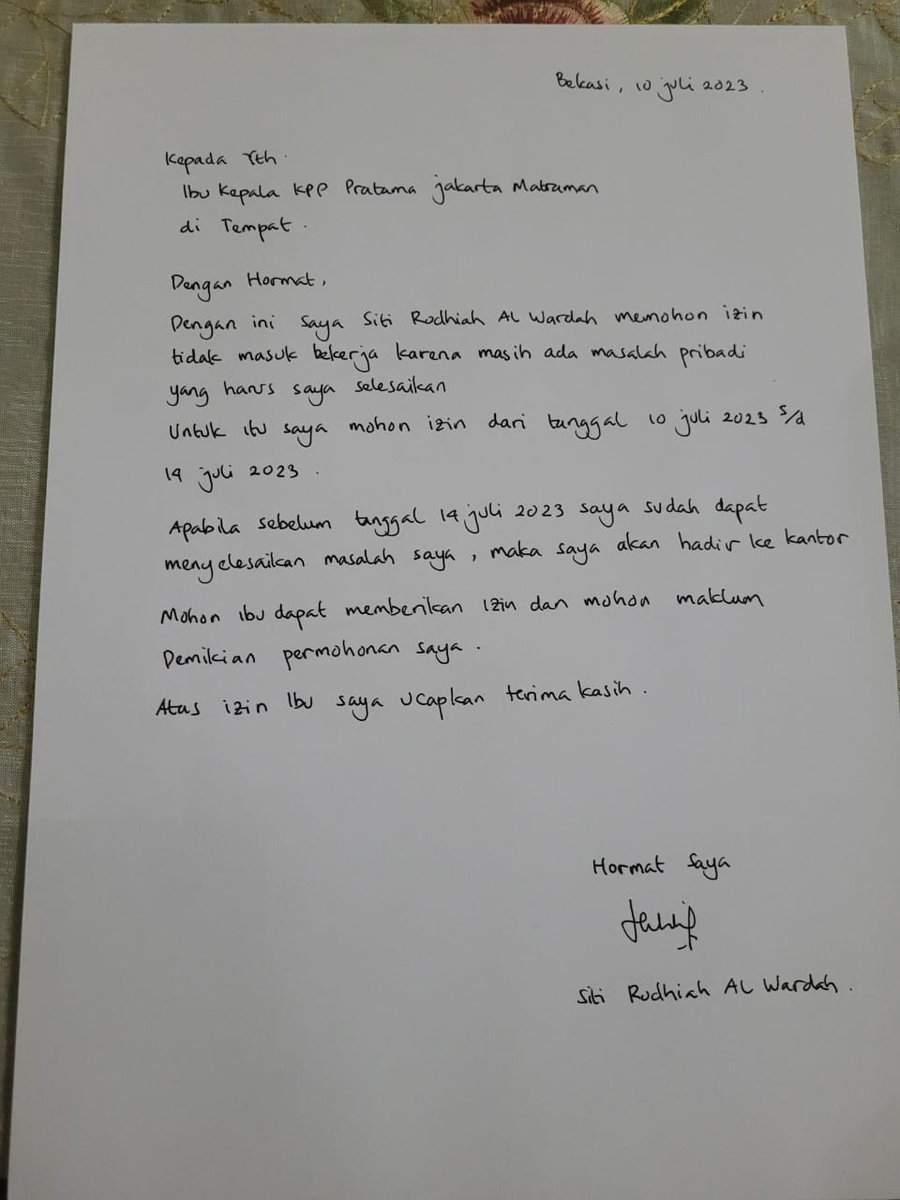 Bekasi, 10 juli 2023.
Kepada Yth.
Ibu Kepala KPP Pratama jakarta Matraman
di Tempat.
Dengan Hormat,
Dengan ini saya Siti Rodhiah AL Wardah memohon izin
tidak masuk bekerja karena masih ada masalah pribadi
yang harus saya selesaikan
Untuk itu saya mohon izin dari tanggal 10 juli 2023 s/d
14 juli 2023.
Apabila sebelum tanggal 14 juli 2023 saya sudah dapat
menyelesaikan masalah saya, maka saya akan hadir ke kantor
Mohon Ibu dapat memberikan izin dan mohon maklum
Demikian permohonan saya.
Atas izin Ibu saya ucapkan terima kasih.
Hormat Saya
Siti Rodhiah AL Wardah.